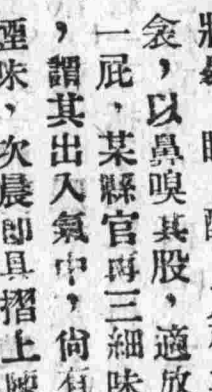 衾，以鼻嗅其股，適放
一屁，某縣官再三細味
，謂其出入氣中，尙有
煙味，次晨卽具摺上